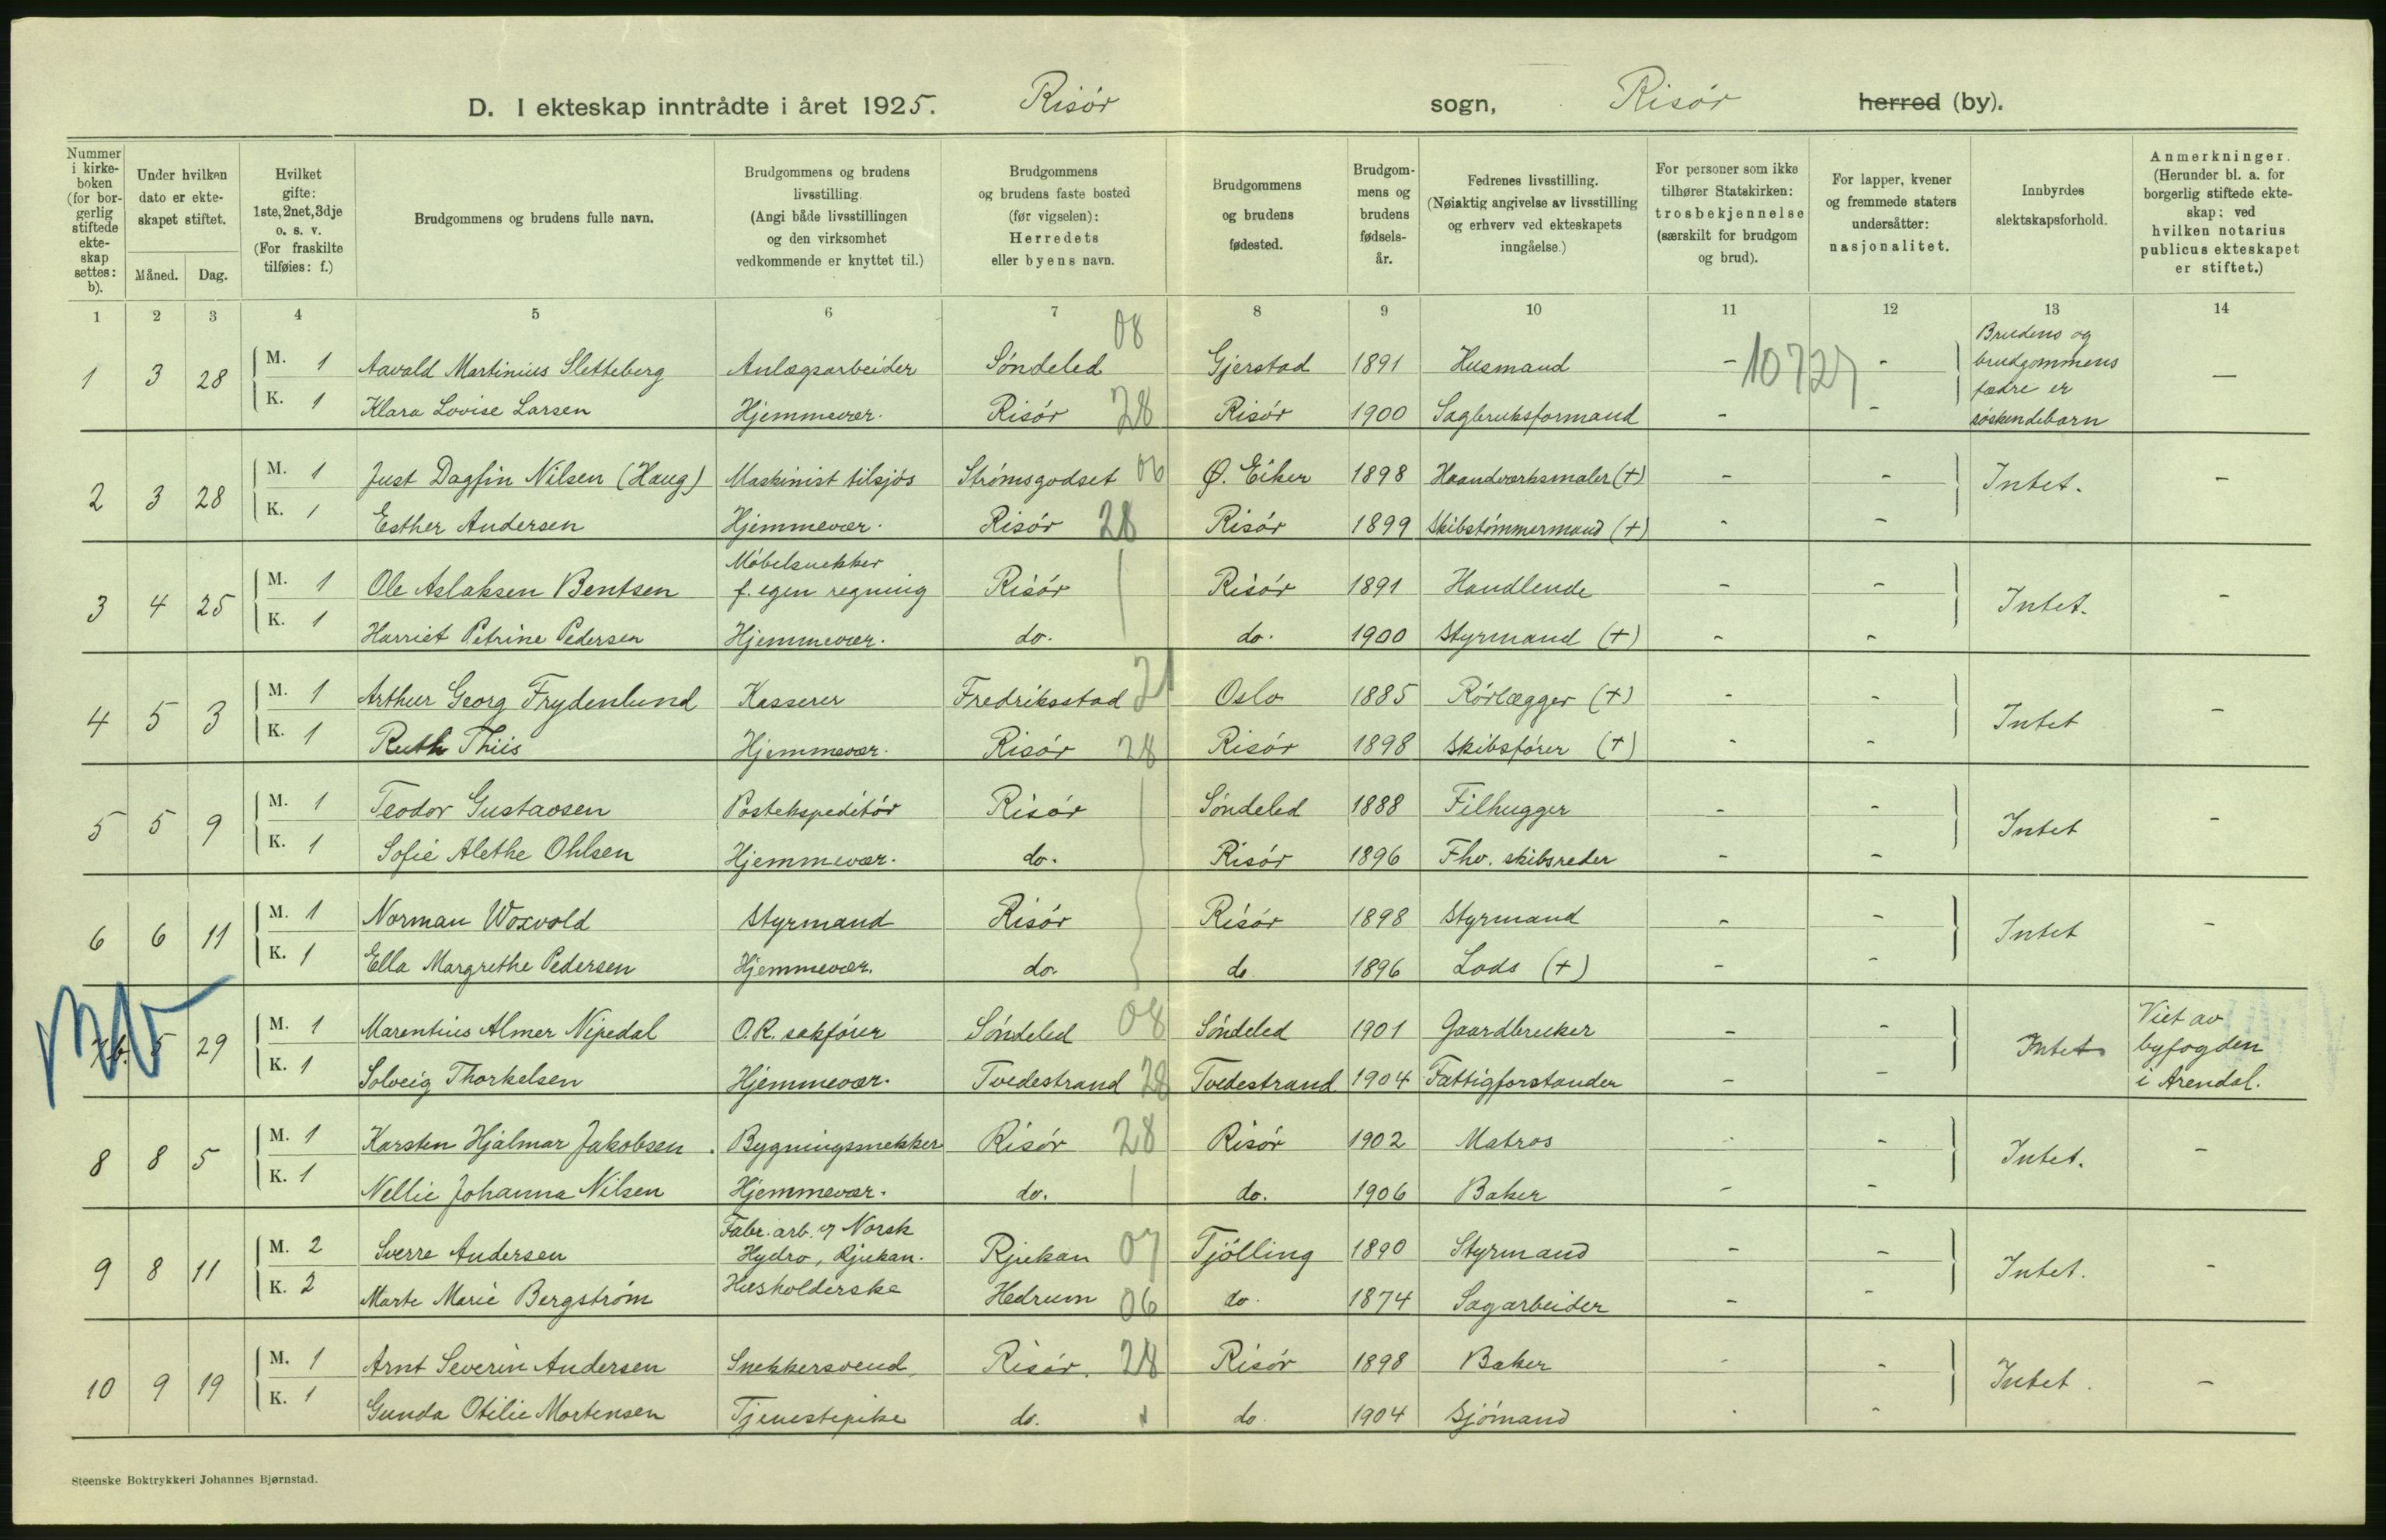 D. I ekteskap inntrådte i året 1925. Risör sogn, Risör herred (by).
Nummer i kirkeboken (for borgerlig stiftede ekteskap settes: b).
Under hvilken dato er ekteskapet stiftet.
Måned. Dag.
Hvilket gifte: 1ste, 2net, 3dje o. s. v. (For fraskilte tilføies: f.)
Brudgommens og brudens fulle navn.
Brudgommens og brudens livsstilling. (Angi både livsstillingen og den virksomhet vedkommende er knyttet til.)
Brudgommens og brudens faste bosted (før vigselen): Herredets eller byens navn.
Brudgommens og brudens fødested.
Brudgommens og brudens fødselsår.
Fedrenes livsstilling. (Nøiaktig angivelse av livsstilling og erhverv ved ekteskapets inngåelse.)
For personer som ikke tilhører Statskirken: trosbekjennelse (særskilt for brudgom og brud).
For lapper, kvener og fremmede staters undersåtter: nasjonalitet.
Innbyrdes slektskapsforhold.
Anmerkninger. (Herunder bl. a. for borgerlig stiftede ekteskap: ved hvilken notarius publicus ekteskapet er stiftet.)
1 2 3 4 5 6 7 8 9 10 11 12 13 14
1 3 28 M. 1 Aavald Martinius Sletteberg Anlægsarbeider Söndeled 08 Gjerstad 1891 Husmand - 10727 - Brudens og brudgommens fædre er søskendebarn —
K. 1 Klara Lovise Larsen Hjemmevær. Risör 28 Risör 1900 Sagbruksformand - -
2 3 28 M. 1 Just Dagfin Nilsen (Haug) Maskinist tilsjös Strömsgodset 06 Ø. Eiker 1898 Haandverksmaler (+) - - Intet. -
K. 1 Esther Andersen Hjemmevær. Risör 28 Risör 1899 Skibstömmermand (+) - -
3 4 25 M. 1 Ole Aslaksen Bentsen Möbelsnekker f. egen regning Risör Risör 1891 Handlende - - Intet. -
K. 1 Harriet Petrine Pedersen Hjemmevær. do. do. 1900 Styrmand (+) - -
4 5 3 M. 1 Arthur Georg Frydenlund Kasserer Fredriksstad 21 Oslo 1885 Rörlægger (+) - - Intet -
K. 1 Ruth Thiis Hjemmevær. Risör 28 Risör 1898 Skibsförer (+) - -
5 5 9 M. 1 Teodor Gustavsen Postekspeditör Risör Söndeled 1888 Filhugger - - Intet -
K. 1 Sofie Alethe Ohlsen Hjemmevær. do. Risör 1896 Fhv. skibsreder - -
6 6 11 M. 1 Norman Woxvold Styrmand Risör Risör 1898 Styrmand - - Intet -
K. 1 Ella Margrethe Pedersen Hjemmevær. do. do 1896 Lods (+) - -
5 29 M. 1 Marentius Almer Nipedal O.R. sakförer Söndeled 08 Söndeled 1901 Gaardbruker - - Intet Viet av byfogden i Arendal.
K. 1 Solveig Thorkelsen Hjemmevær. Tvedestrand 28 Tvedestrand 1904 Fattigforstander - -
8 8 5 M. 1 Karsten Hjalmar Jakobsen. Bygningsnekker Risör 28 Risör 1902 Matros - - Intet. -
K. 1 Nellie Johanna Nilsen Hjemmevær. do. do. 1906 Baker - -
9 8 11 M. 2 Sverre Andersen Fabr. arb. v Norsk Hydro, Rjukan. Rjukan 07 Tjölling 1890 Styrmand - - Intet. -
K. 2 Marte Marie Bergström Husholderske Hedrum 06 do. 1874 Sagarbeider - -
10 9 19 M. 1 Arnt Severin Andersen Snekkersvend Risör. 28 Risör 1898 Baker - - Intet. -
K. 1 Gunda Otilie Mortensen Tjenestepike do. do. 1904 Sjömand - -
Steenske Boktrykkeri Johannes Bjørnstad.